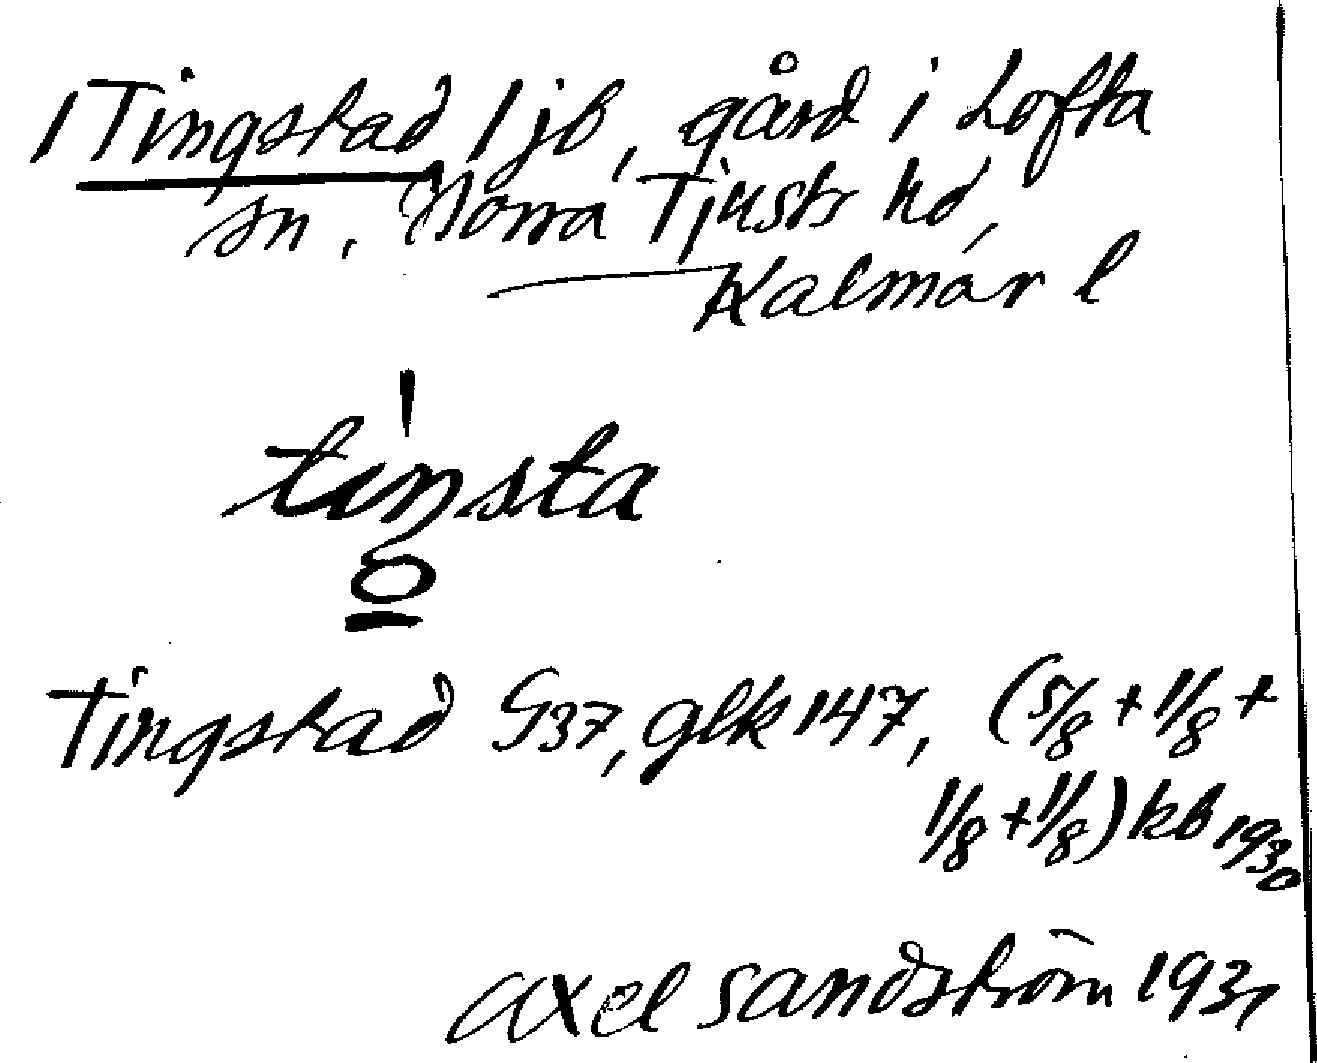 1 Tingstad 1 jb, gård i Lofta
sn, Norra Tjusts hd,
Kalmar l
tiŋsta
Tingstad G37, glk 147, (5/8 + 1/8 +
1/8 + 1/8) kb 1930
Axel Sandström 1931